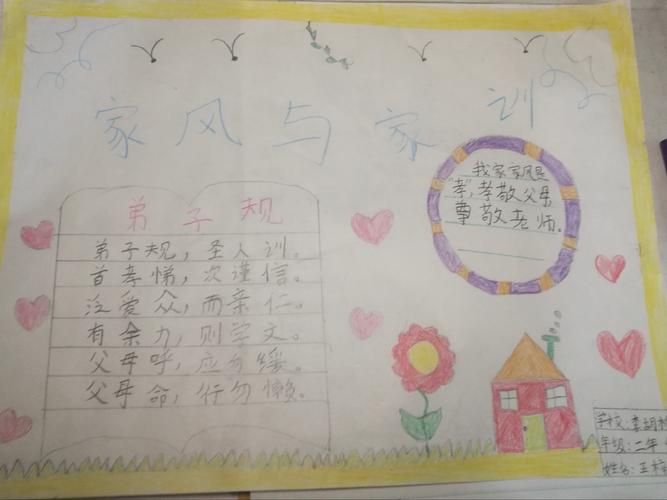 家风与家训
弟子规
弟子规，圣人训。
首孝悌，次谨信。
泛爱众，而亲仁。
有余力，则学文。
父母呼，应勿缓。
父母命，行勿懒。
我家家风是
“孝”，孝敬父母
尊敬老师。
学校：李胡
年级：二年
姓名：王